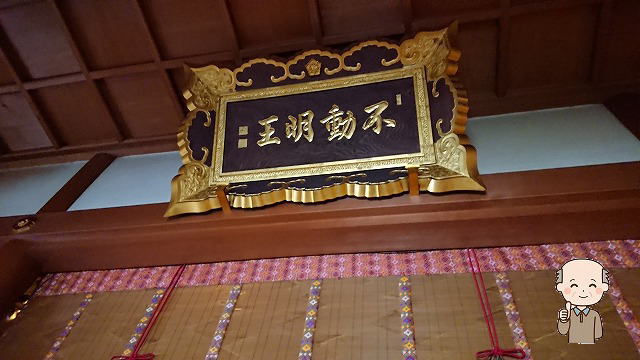 不動明王